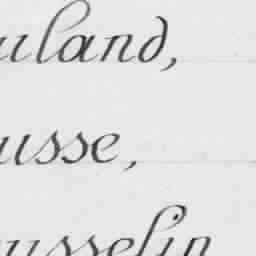 uland,
usse,
usselin